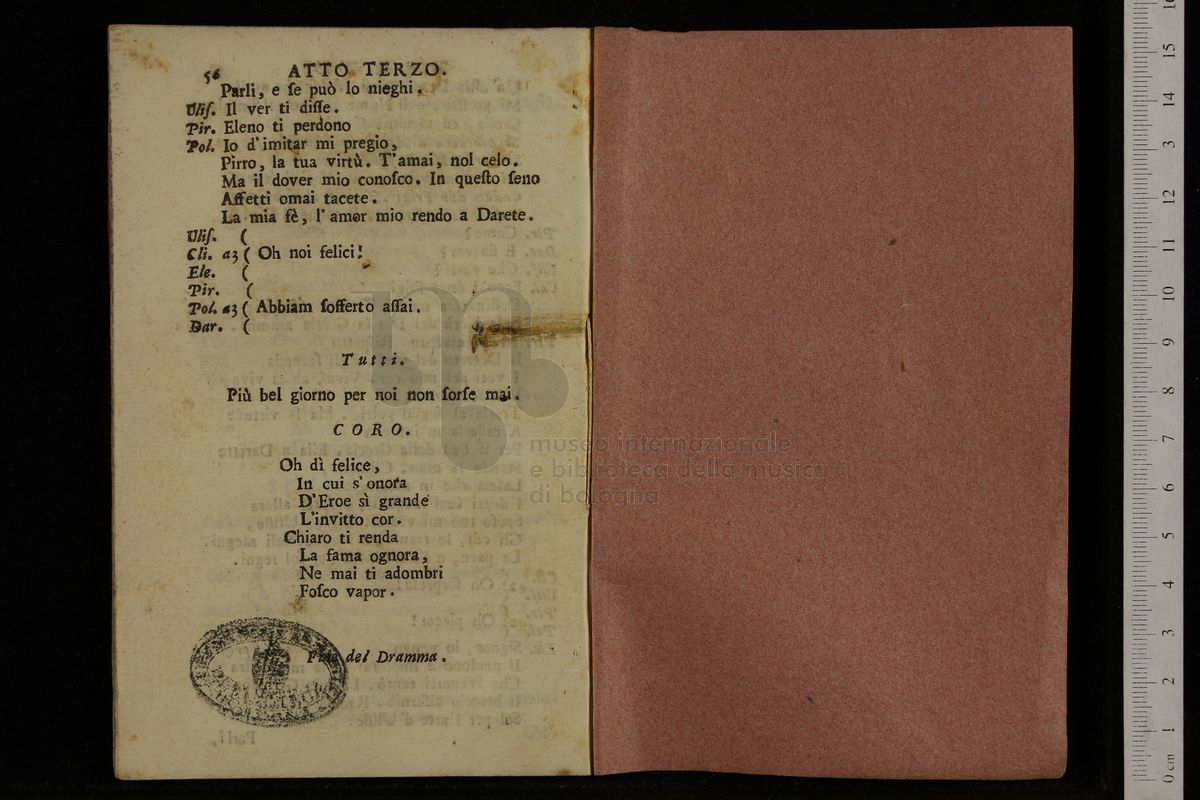 56 ATTO TERZO.
Parli, e ſe può lo nieghi.
Uliſ. Il ver ti diſſe.
Pir. Eleno ti perdono
Pol. Io d'imitar mi pregio,
Pirro, la tua virtù. T'amai, nol celo.
Ma il dover mio conoſco. In queſto ſeno
Affetti omai tacete.
La mia fè, l'amor mio rendo a Darete.
Uliſ. (
Cli. a3 ( Oh noi felici!
Ele. (
Pir. (
Pol. a3 ( Abbiam ſofferto aſſai.
Dar. (
Tutti.
Più bel giorno per noi non ſorſe mai.
CORO.
Oh dì felice,
In cui s'onora
D'Eroe sì grande
L'invitto cor.
Chiaro ti renda
La fama ognora,
Ne mai ti adombri
Foſco vapor.
Fine del Dramma.
Parli,
museo internazionale
e biblioteca della musica
di bologna
0 cm 1 2 3 4 5 6 7 8 9 10 11 12 13 14 15 16